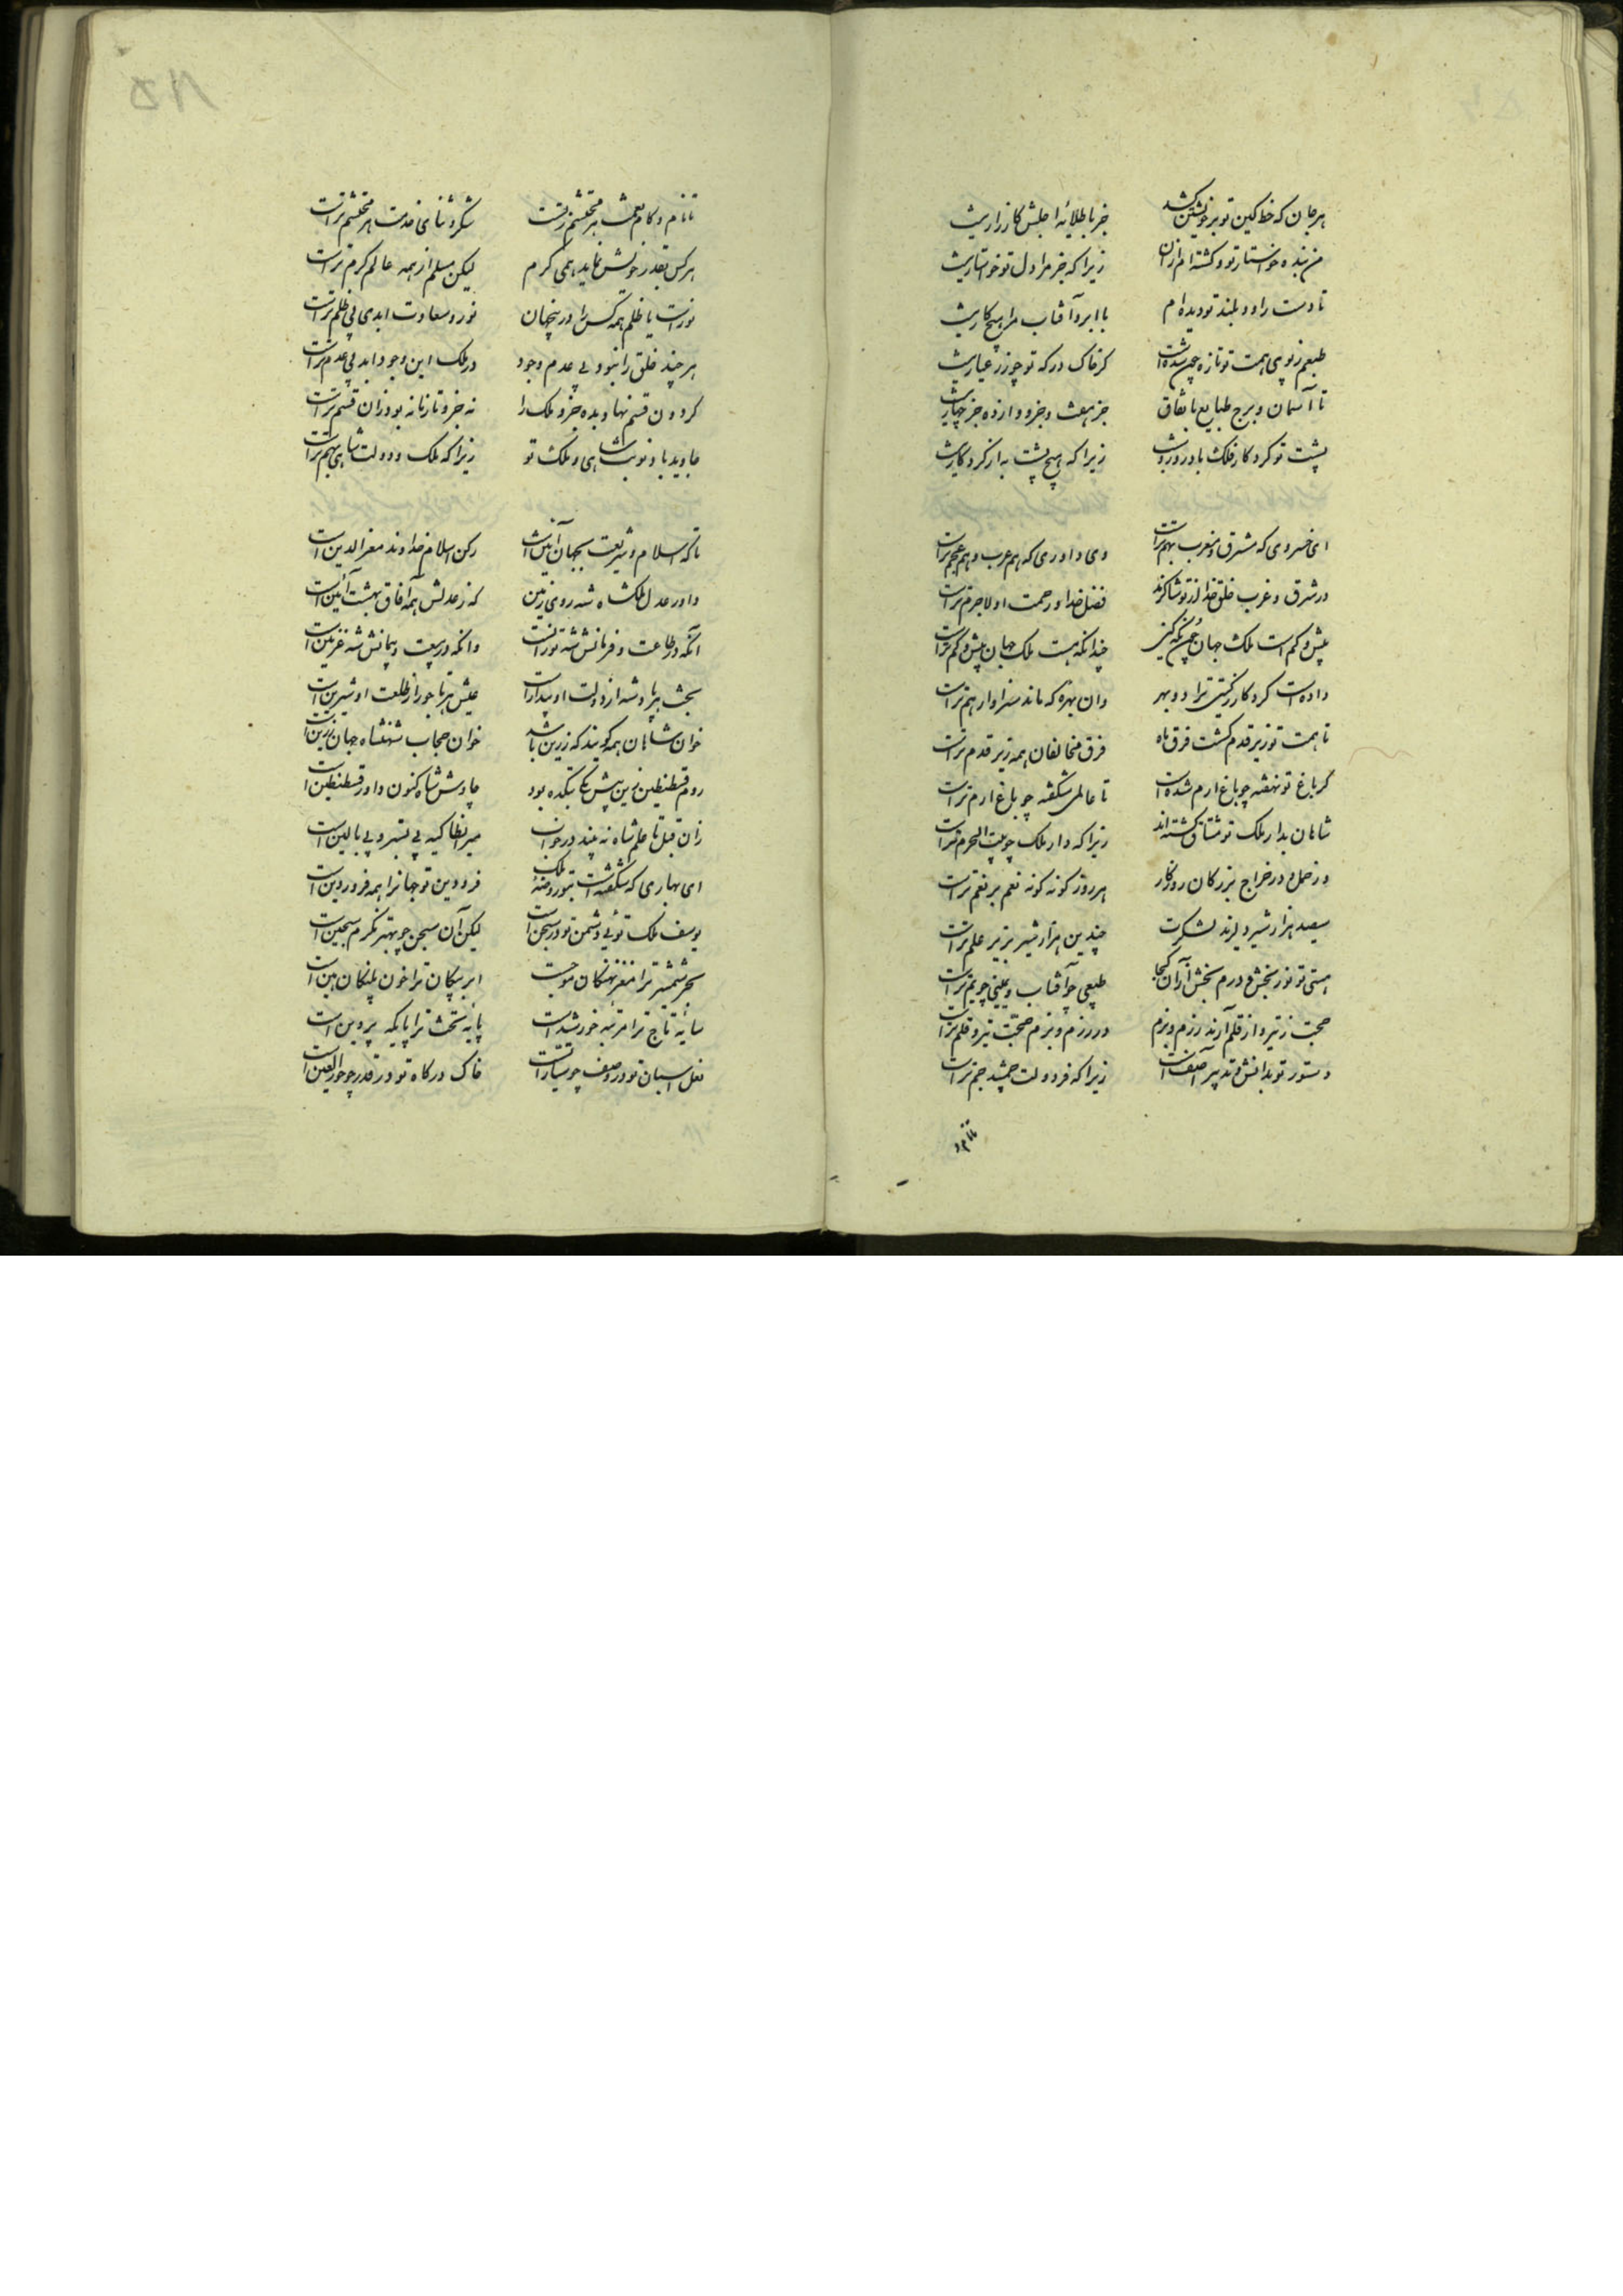 هر جان که خط کین تو بر خویشتن کشد جز با طلایهٔ اجلش کارزار نیست
من بنده خواستار تو و کشته‌ام ازان زیرا که جز مرا دل تو خواستار نیست
تا دست راد و بلند تو دیده‌ام با ابر و آفتاب مرا هیچ کار نیست
طبعم ز بوی همت تو تازه چمن شدست کز خاک درکه تو چو زر عیار نیست
تا آسمان و برج طبایع باتفاق جز هفت و جز دوازده جز چهار نیست
پشت تو کردکار فلک باد روز و شب زیرا که هیچ پشت به از کردکار نیست
ای خسروی که مشرق و مغرب بهم تراست وی داوری که هم عرب و هم عجم تراست
در شرق و غرب خلق خدا از تو شاکرند فضل خدا و رحمت او لاجرم تراست
بیش و کم است ملک جهان چون نکه کنی چندانکه هست ملک جهان بیش و کم تراست
داده است کردکار ز کیتی ترا دو بهر وان بهره که ماند سزاوار هم تراست
تا همت تو زیر قدم کشت فرق ماه فرق مخالفان همه زیر قدم تراست
کر باغ تو بنفشه چو باغ ارم شده است تا عالمی شکفته چو باغ ارم تراست
شاهان بدار ملک تو مشتاق کشته‌اند زیرا که دار ملک چو بیت الحرم تراست
در حمل و در خراج بزرکان روزکار هر روز کونه کونه نعم بر نعم تراست
سیصد هزار شیر دلیرند لشکرت چندین هزار شیر بزیر علم تراست
هستی تو نور بخش و درم بخش از آن کجا طبعی چو آفتاب و یمینی چو یم تراست
حجت ز تیر و از قلم آرند رزم و بزم در رزم و بزم حجت تیر و قلم تراست
دستور تو بدانش و تدبیر آصف است زیرا که فر دولت جمشید جم تراست
تا نام و
تا نام و کام نعمت هر محتشم ز تست شکر و ثنای خدمت هر محتشم تراست
هر کس بقدر خویش نماید همی کرم لیکن مسلم از همه عالم کرم تراست
نورست یا ظلم همه کس را درین جهان نور و سعادت ابدی بی ظلم تراست
هر چند خلق را نبود بی عدم وجود در ملک این وجود ابد بی عدم تراست
کردون قسم نهاد بده جزو ملک را نه جزو تازیانه بود زان قسم تراست
جاوید باد نوبت شاهی و ملک تو زیرا که ملک و دولت شاهی بهم تراست
تا که اسلام و شریعت بجهان آئین است رکن اسلام خداوند معز الدین است
داور عدل ملکشاه شه روی زمین که ز عدلش همه آفاق بهشت آئین است
آنکه در طاعت و فرمانش شه توران است وانکه در بیعت و پیمانش شه غزنین است
بخت هر پادشه از دولت او بیدار است عیش هر تاجور از طلعت او شیرین است
خوان شاهان همه کویند که زرین باشد خوان حجاب شهنشاه جهان زرین است
روم قسطنطین زین پیش یکی بتکده بود چاوش شاه کنون داور قسطنطین است
زان قبل تا علم شاه نه بیند در خواب میر انطاکیه بی بستر و بی بالین است
ای بهاری که شکفته است بتو روضهٔ ملک فرودین تو جهانرا همه فروردین است
یوسف ملک توئی دشمن تو در سجن است لیکن آن سجن چو بهتر نکرم سجین است
بحر شمشیر ترا مغز نهنکان موج است ابر پیکان ترا خون پلنکان هین است
سایهٔ تاج ترا مرتبهٔ خورشید است پایهٔ تخت ترا پایکه پروین است
نعل اسبان تو در وصف چو سیارات است خاک درکاه تو در قدر چو حور العین است